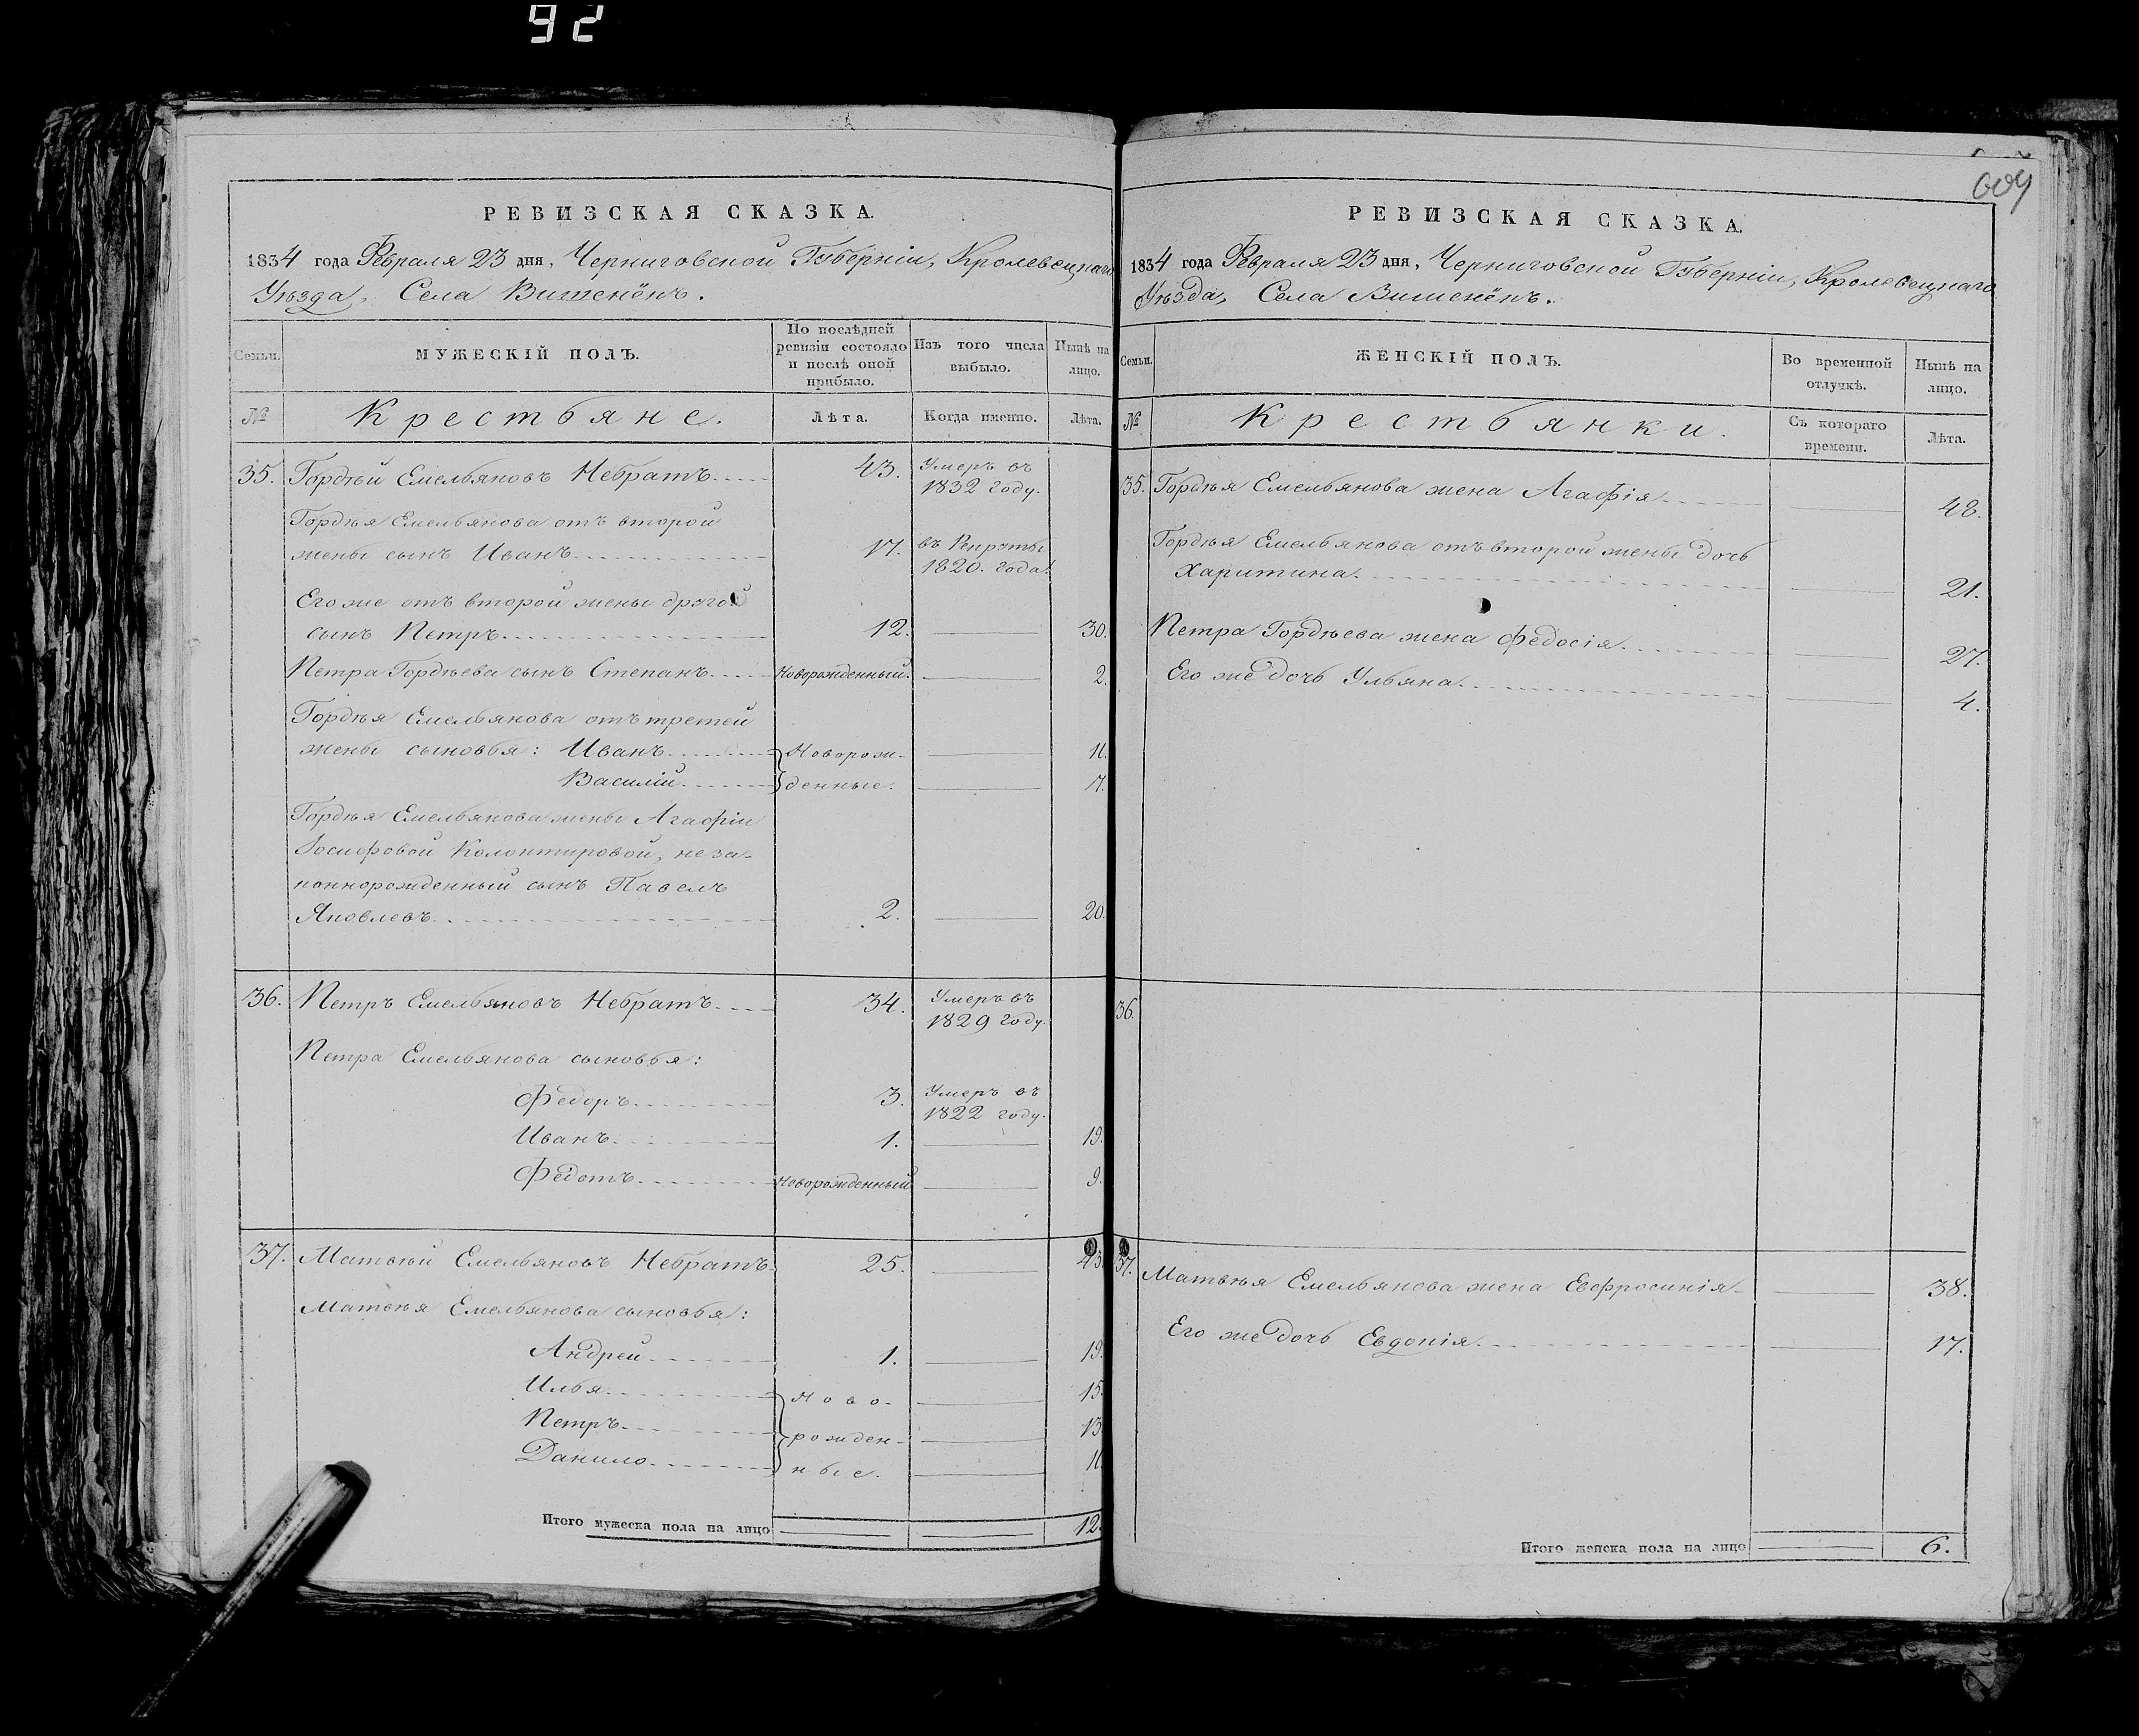 92
РЕВИЗСКАЯ СКАЗКА.
1834 года Февраля 23 дня, Черниговской Губерніи, Кролевецкаго
Уѣзда, Села Вишенёкъ.
Семьи.
МУЖЕСКІЙ ПОЛЪ.
По послѣдней
ревизіи состояло
и послѣ оной
прибыло.
Изъ того числа
выбыло.
Нынѣ на
лицо.
№
Крестьяне.
Лѣта.
Когда именно.
Лѣта.
35. Гордѣй Емельяновъ Небратъ 43. Умеръ въ
1832 году.
Гордѣя Емельянова отъ второй
жены сынъ Иванъ 17. въ Рекруты
1820. года.
Его же отъ второй жены другой
сынъ Петръ 12. 30.
Петра Гордѣева сынъ Степанъ Новорожденный. 2.
Гордѣя Емельянова отъ третей
жены сыновья: Иванъ Новорож- 11.
Василій денные. 7.
Гордѣя Емельянова жены Агафіи
Іосифовой Колонтировой, неза-
коннорожденный сынъ Павелъ
Яковлевъ 2. 20.
36. Петръ Емельяновъ Небратъ 34. Умеръ въ
1829 году.
Петра Емельянова сыновья:
Федоръ 3. Умеръ въ
1822 году.
Иванъ 1. 19.
Федотъ Новорожденный 9.
37. Матвѣй Емельяновъ Небратъ 25. 45.
Матвѣя Емельянова сыновья:
Андрей 1. 19.
Илья Ново- 15.
Петръ рожден- 13.
Данило ные. 11.
Итого мужеска пола на лицо 12.
609
РЕВИЗСКАЯ СКАЗКА.
1834 года Февраля 23 дня, Черниговской Губерніи, Кролевецкаго
Уѣзда, Села Вишенёкъ.
Семьи.
ЖЕНСКІЙ ПОЛЪ.
Во временной
отлучкѣ.
Нынѣ на
лицо.
№
Крестьянки.
Съ котораго
времени.
Лѣта.
35. Гордѣя Емельянова жена Агафія 48.
Гордѣя Емельянова отъ второй жены дочь
Харитина. 21.
Петра Гордѣева жена Федосія. 27.
Его же дочь Ульяна. 4.
36.
37. Матвѣя Емельянова жена Евфросинія 38.
Его же дочь Евдокія 17.
Итого женска пола на лицо 6.